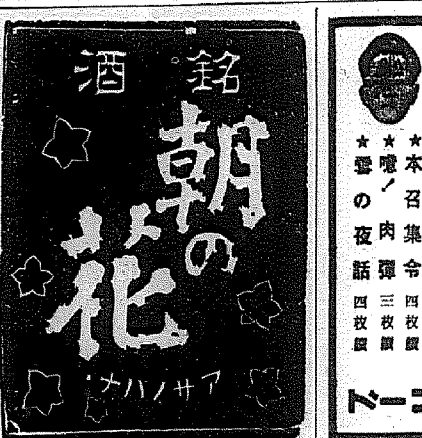 銘酒
朝の花
アサノハナ
★本召集令 四枚續
★噫!肉彈 三枚續
★雪の夜話 四枚續
コード